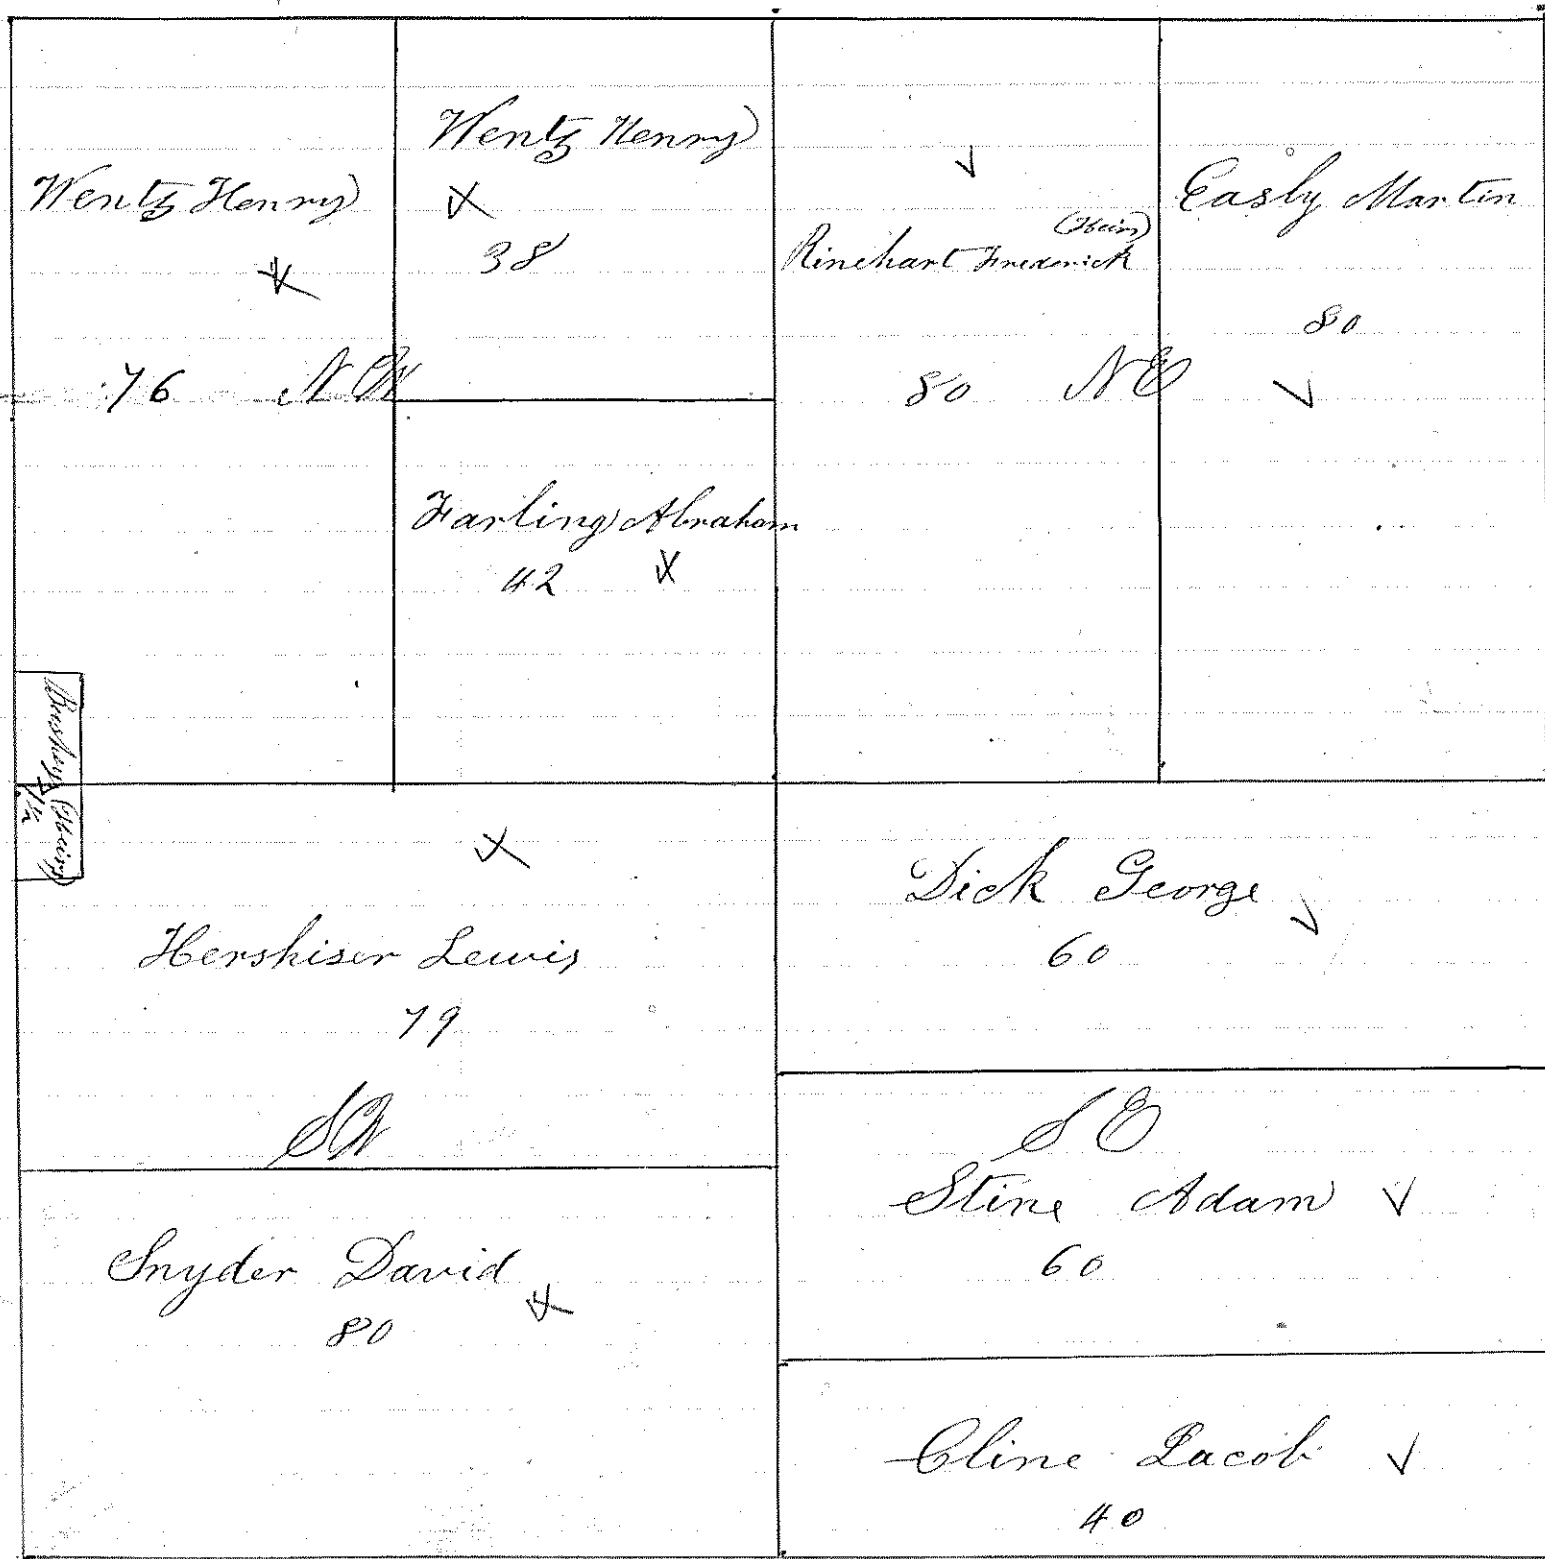 Wentz Henry
76 NW
Wentz Henry
38
Farling Abraham
42
(Heirs)
Rinehart Frederick
80 NE
Easly Martin
80
(Heirs)
Hershiser Lewis
79
SW
Snyder David
80
Dick George
60
SE
Stine Adam
60
Cline Jacob
40